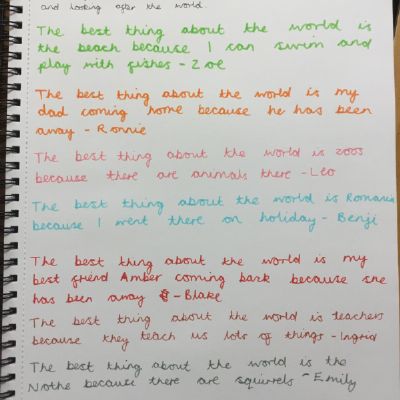 and looking after the world.
The best thing about the world is
the beach because I can swim and
play with fishes - Zoe
The best thing about the world is my
dad coming home because he has been
away - Ronnie
The best thing about the world is zoos
because there are animals there - Leo
The best thing about the world is Romania
because I went there on holiday - Benji
The best thing about the world is my
best friend Amber coming back because she
has been away - Blake
The best thing about the world is teachers
because they teach us lots of things - Ingrid
The best thing about the world is the
Nothe because there are squirrels - Emily